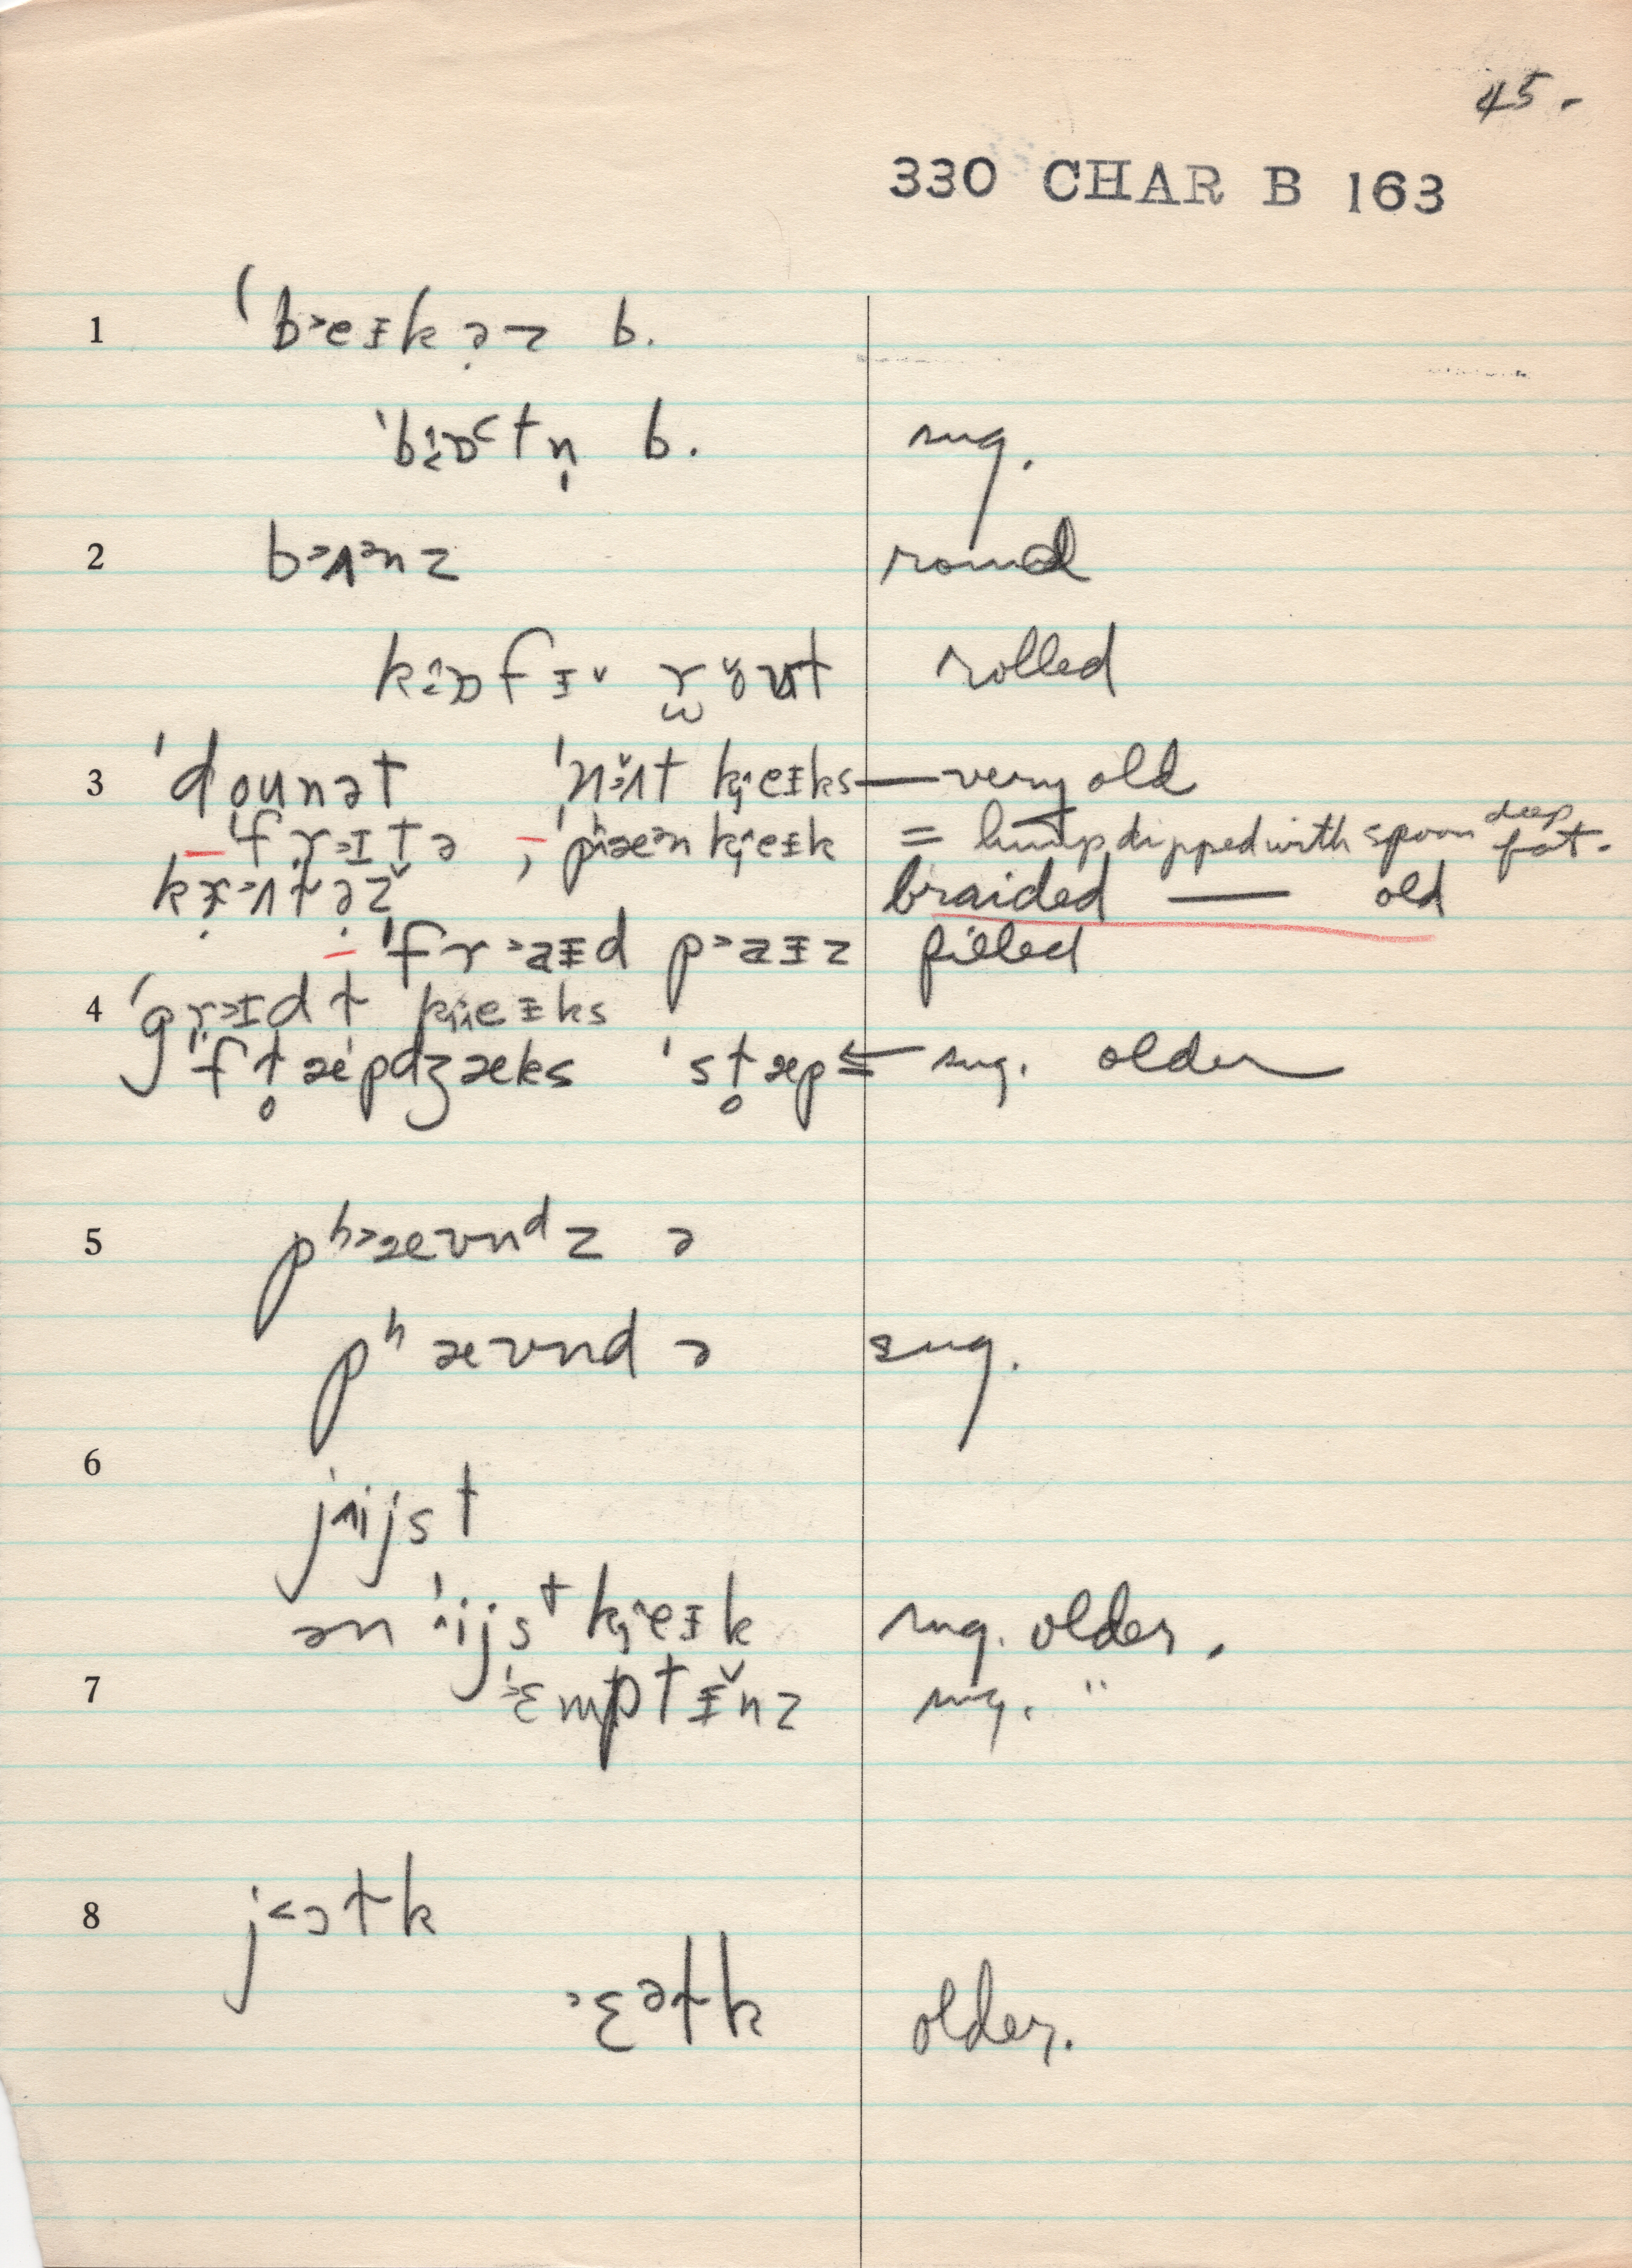 45.
330 CHAR B 163
1 ˈb˃eᵻkə̣z b.
ˈbɒ˂tn̩ b. sug.
2 b˃ʌ˃nz round
kɒfᵻ˘ rolled
3 ˈdounət ˈnʌ̆t kj̑eᵻks — very old
ˈfr˃ɪtə , ˈpʰæ˃nkj̑eᵻk = lump dipped with spoon deep fat.
braided — old
ˈfr˃aᵻd p˃aᵻz filled
4 ˈgr˃ɪdɫ kj̑eᵻks
ˈfl̥æpdʒæks ˈsl̥æp ⇐ sug. older
5 pʰ˃æʊnᵈz ə
pʰæʊnd ə sug.
6 jijst
ən ˈijst kj̑eᵻk sug. older.
7 ˈɛmptᵻ̆nz sug. "
8 j˂ɔɫk
ɛᵊɫk older.